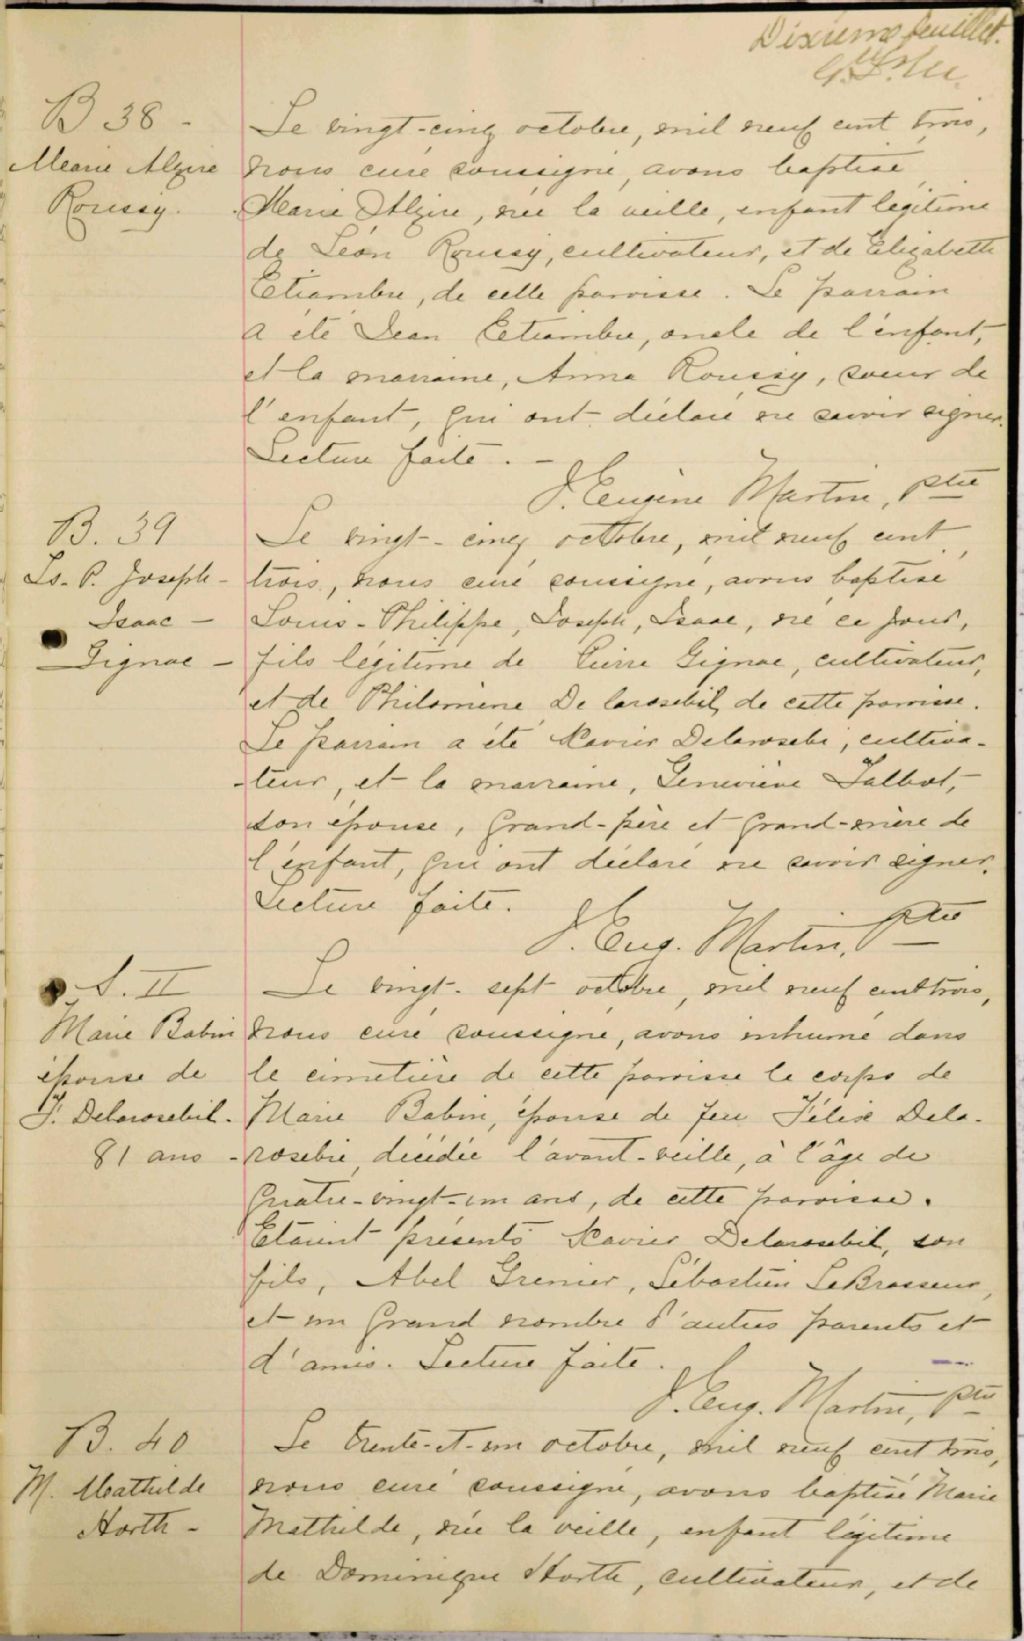 Dixième feuillet.
B 38 -
Marie Alzire
Roussy.
Le vingt-cinq octobre, mil neuf cent trois,
nous curé soussigné, avons baptisé
Marie Alzire, née la veille, enfant légitime
de Léon Roussy, cultivateur, et de Elizabeth
Etiambre, de cette paroisse. Le parrain
a été Jean Etiambre, oncle de l'enfant,
et la marraine, Anna Roussy, soeur de
l'enfant, qui ont déclaré ne savoir signer.
Lecture faite. -
J. Eugène Martin, Ptre
B. 39
Ls. P. Joseph -
Isaac -
Gignac -
Le vingt-cinq octobre, mil neuf cent
trois, nous curé soussigné, avons baptisé
Louis-Philippe, Joseph, Isaac, né ce jour,
fils légitime de Pierre Gignac, cultivateur,
et de Philomène Delarosebil, de cette paroisse.
Le parrain a été Xavier Delarosebi, cultiva-
-teur, et la marraine, Geneviève Talbot,
son épouse, grand-père et grand-mère de
l'enfant, qui ont déclaré ne savoir signer.
Lecture faite.
J. Eug. Martin, Ptre
S. II
Marie Babin
épouse de
F. Delarosebil.
81 ans -
Le vingt-sept octobre, mil neuf cent trois,
nous curé soussigné, avons inhumé dans
le cimetière de cette paroisse le corps de
Marie Babin, épouse de feu Félix Dela-
rosebie, décédée l'avant-veille, à l'âge de
quatre-vingt-un ans, de cette paroisse.
Etaient présents Xavier Delarosebil, son
fils, Abel Grenier, Sébastien LeBrasseur,
et un grand nombre d'autres parents et
d'amis. Lecture faite.
J. Eug. Martin, Ptre
B. 40
M. Mathilde
Horth -
Le trente-et-un octobre, mil neuf cent trois,
nous curé soussigné, avons baptisé Marie
Mathilde, née la veille, enfant légitime
de Dominique Horth, cultivateur, et de